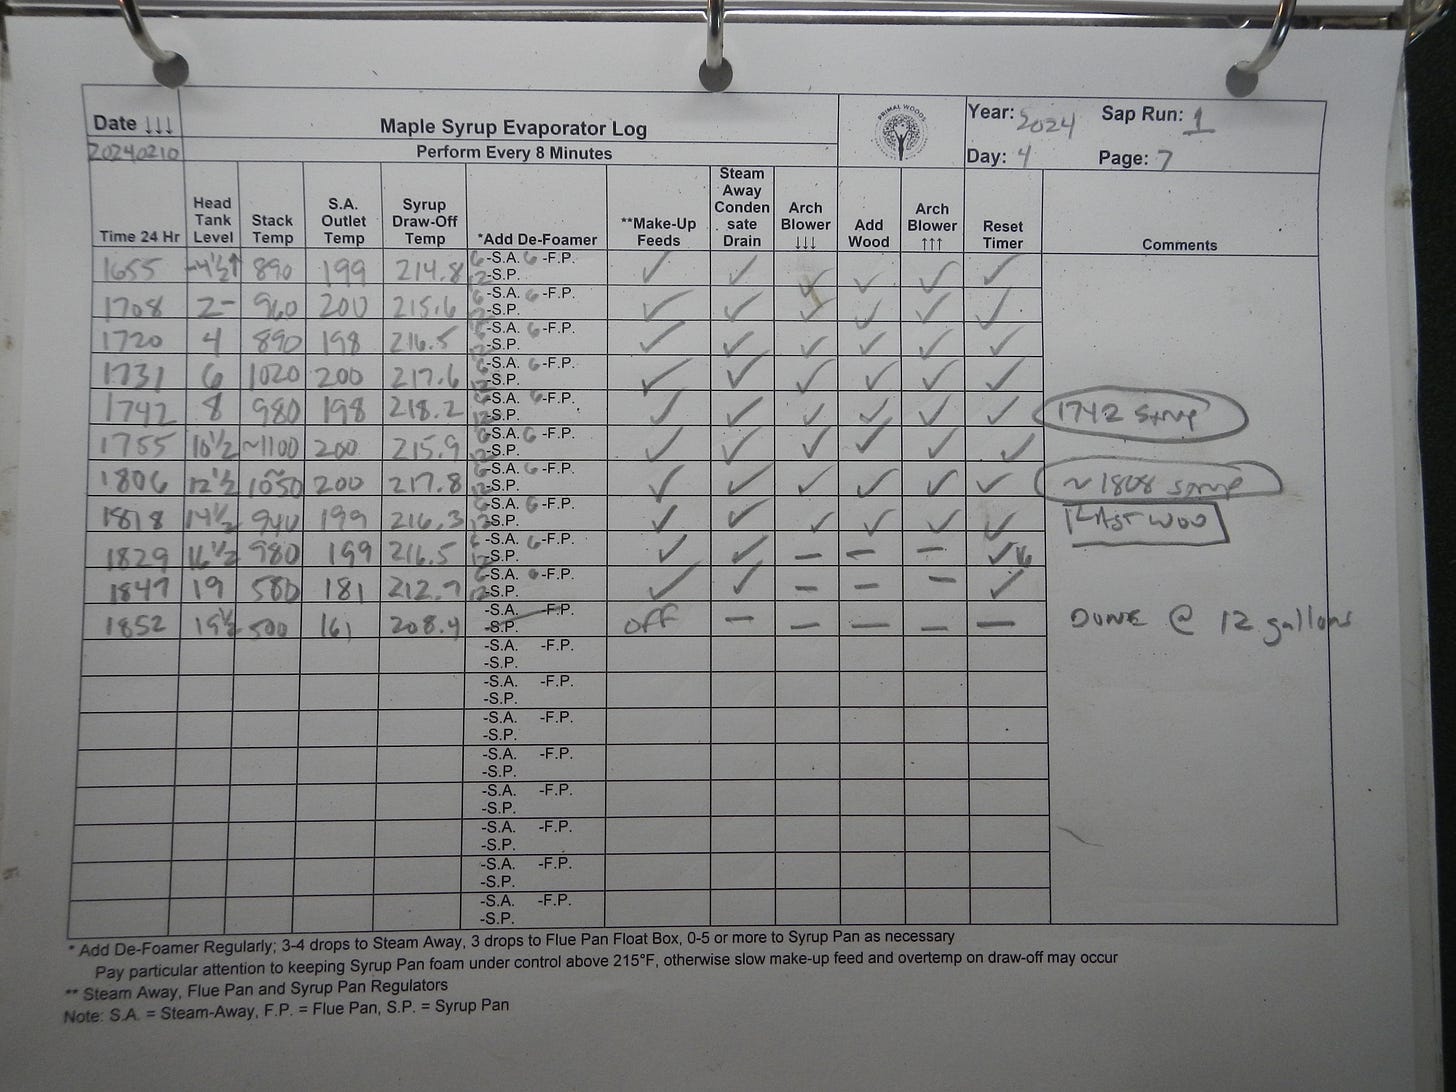 Date ↓↓↓
20240210
Maple Syrup Evaporator Log
Perform Every 8 Minutes
PRIMAL WOODS
Year: 2024 Sap Run: 1
Day: 4 Page: 7
Time 24 Hr
Head Tank Level
Stack Temp
S.A. Outlet Temp
Syrup Draw-Off Temp
*Add De-Foamer
**Make-Up Feeds
Steam Away Conden sate Drain
Arch Blower ↓↓↓
Add Wood
Arch Blower ↑↑↑
Reset Timer
Comments
1655 ~4½↑ 890 199 214.8 6-S.A. 6-F.P. ✓ ✓ ✓ ✓ ✓ ✓
12-S.P.
1708 2- 960 200 215.6 6-S.A. 6-F.P. ✓ ✓ ✓ ✓ ✓ ✓
12-S.P.
1720 4 890 198 216.5 6-S.A. 6-F.P. ✓ ✓ ✓ ✓ ✓ ✓
12-S.P.
1731 6 1020 200 217.6 6-S.A. 6-F.P. ✓ ✓ ✓ ✓ ✓ ✓
12-S.P.
1742 8 980 198 218.2 6-S.A. 6-F.P. ✓ ✓ ✓ ✓ ✓ ✓ 1742 Syrup
12-S.P.
1755 10½ ~1100 200 215.9 6-S.A. 6-F.P. ✓ ✓ ✓ ✓ ✓ ✓
12-S.P.
1806 12½ 1050 200 217.8 6-S.A. 6-F.P. ✓ ✓ ✓ ✓ ✓ ✓ ~1808 syrup
12-S.P.
1818 14½ 940 199 216.3 6-S.A. 6-F.P. ✓ ✓ ✓ ✓ ✓ ✓ LAST WOO
12-S.P.
1829 16½ 980 199 216.5 6-S.A. 6-F.P. ✓ ✓ - - - ✓
12-S.P.
1847 19 580 181 212.7 6-S.A. 6-F.P. ✓ ✓ - - - ✓
12-S.P.
1852 19½ 500 161 208.4 -S.A. -F.P. off - - - - - DONE @ 12 gallons
-S.P.
-S.A. -F.P.
-S.P.
-S.A. -F.P.
-S.P.
-S.A. -F.P.
-S.P.
-S.A. -F.P.
-S.P.
-S.A. -F.P.
-S.P.
-S.A. -F.P.
-S.P.
-S.A. -F.P.
-S.P.
-S.A. -F.P.
-S.P.
* Add De-Foamer Regularly; 3-4 drops to Steam Away, 3 drops to Flue Pan Float Box, 0-5 or more to Syrup Pan as necessary
Pay particular attention to keeping Syrup Pan foam under control above 215°F, otherwise slow make-up feed and overtemp on draw-off may occur
** Steam Away, Flue Pan and Syrup Pan Regulators
Note: S.A. = Steam-Away, F.P. = Flue Pan, S.P. = Syrup Pan